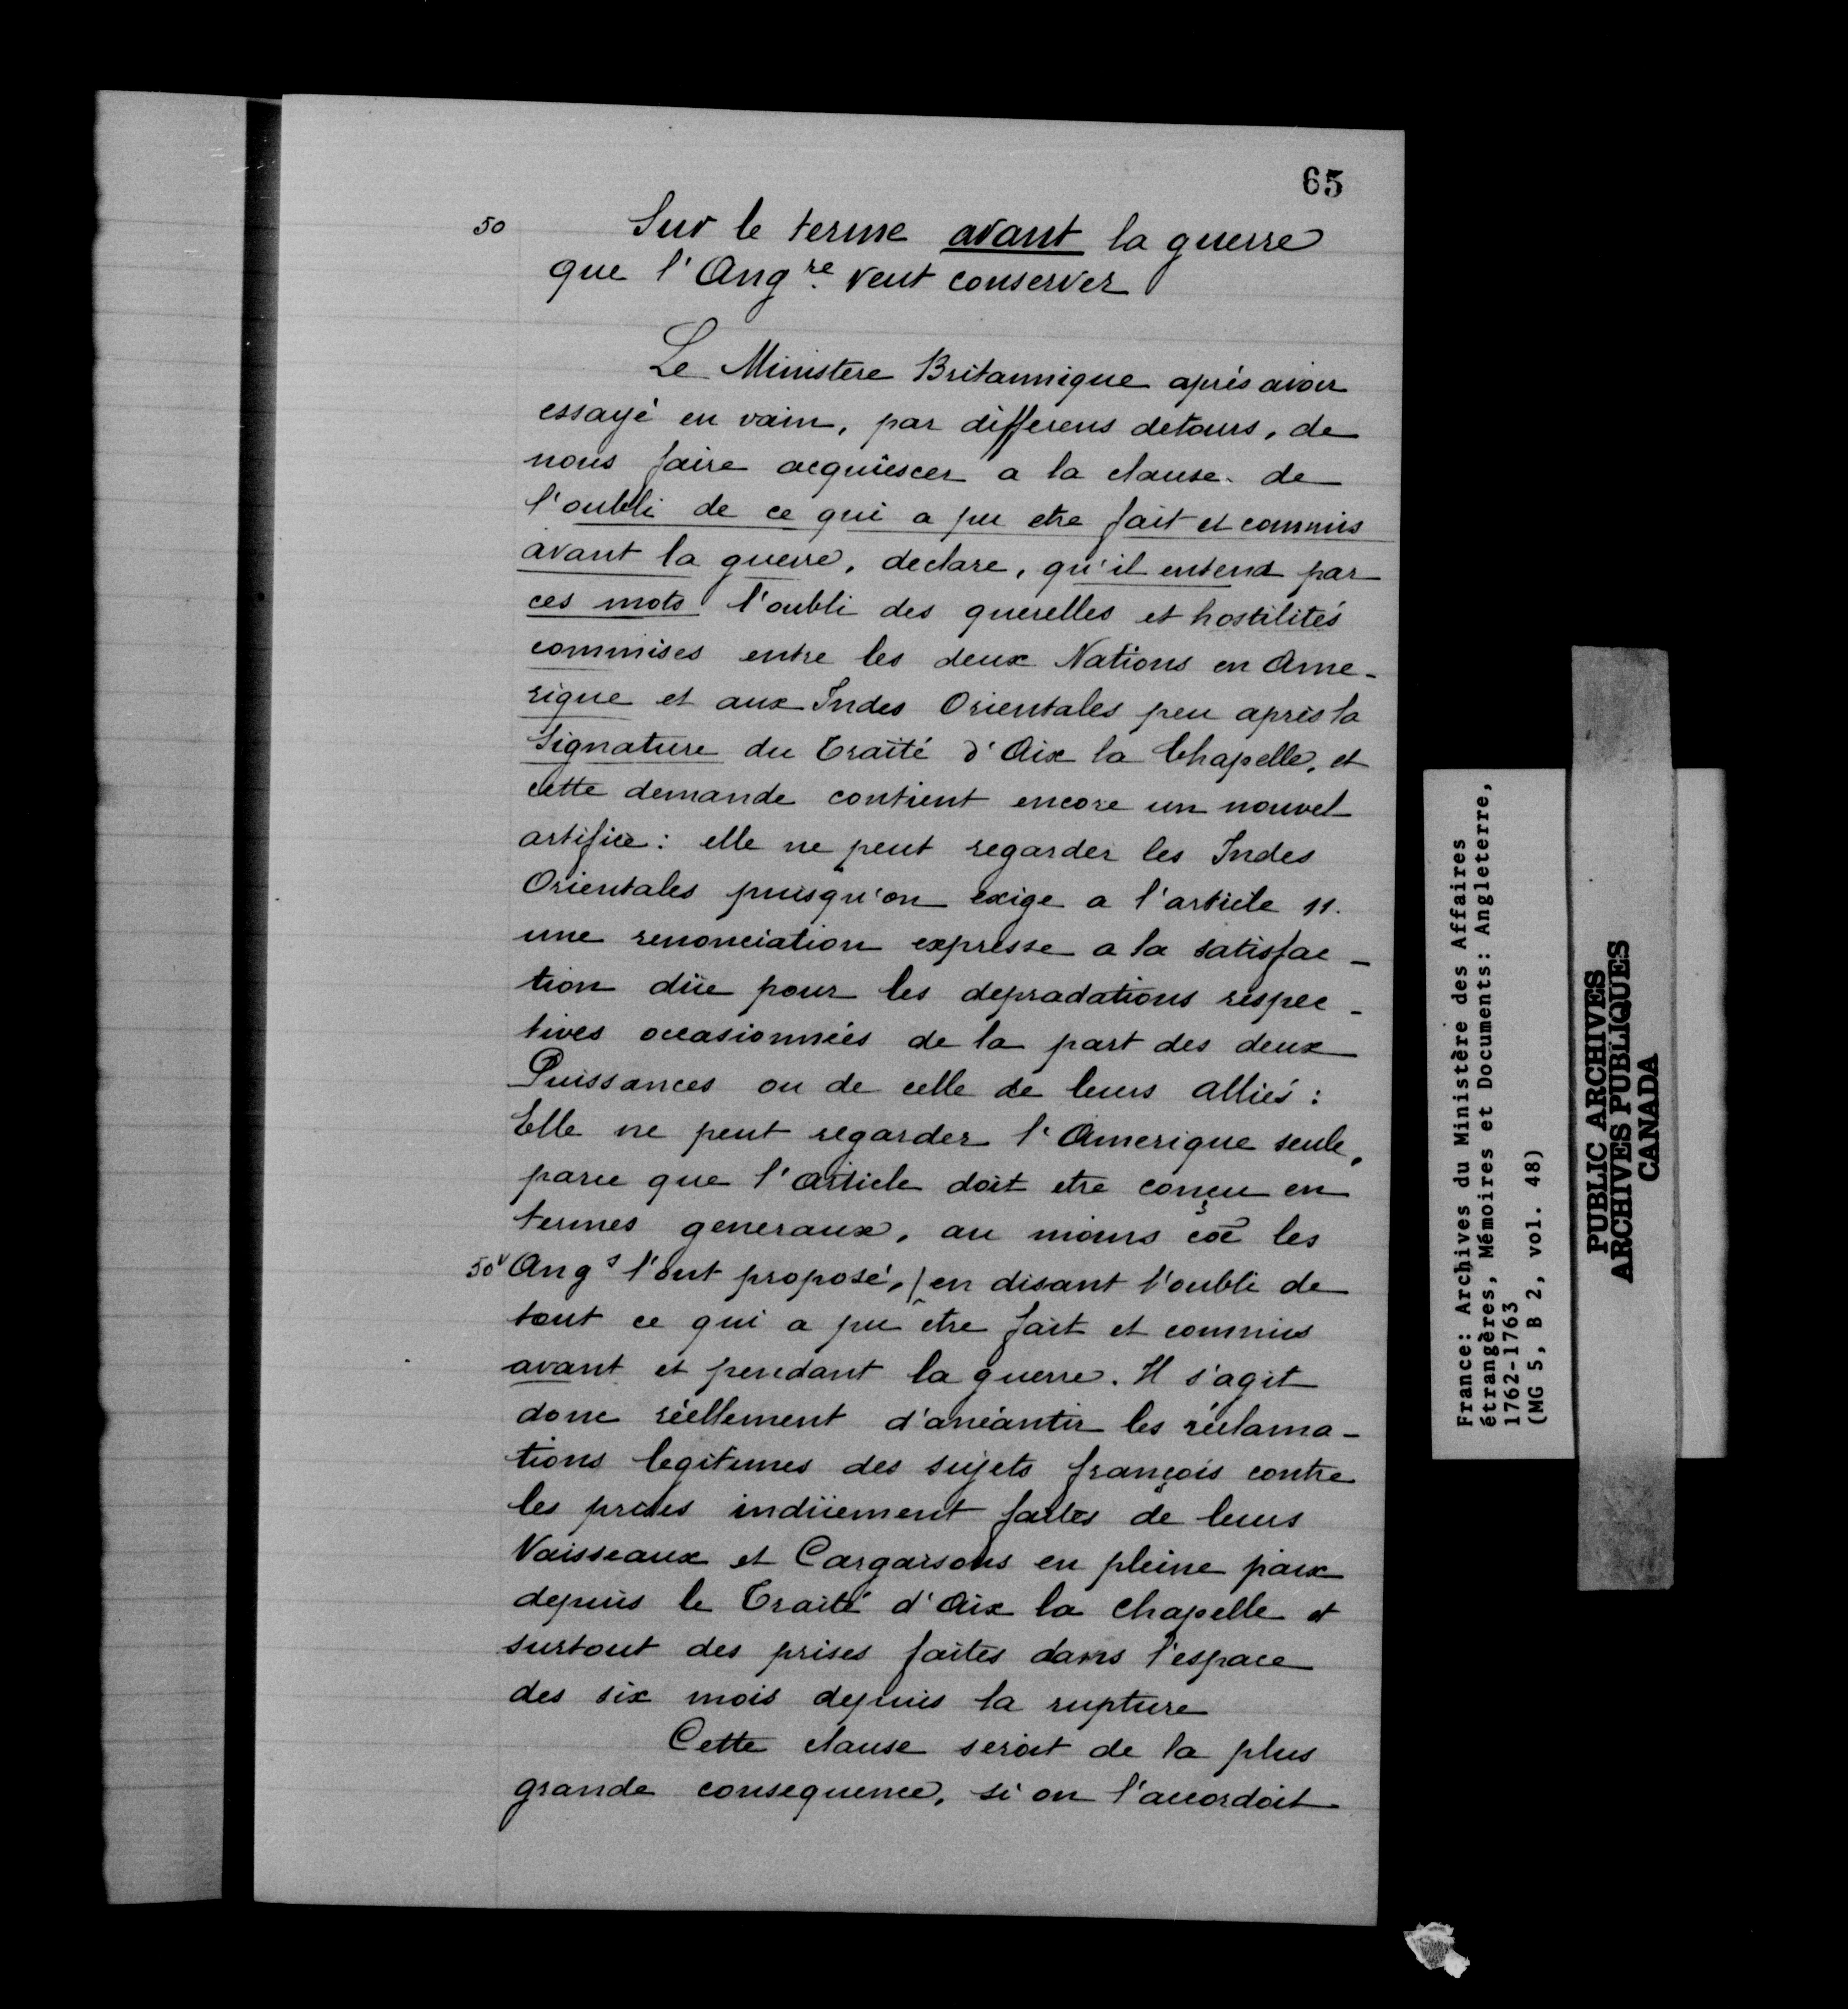 65
50
Sur le terme avant la guerre
que l'Ang.re veut conserver
Le Ministere Britannique après avoir
essayé en vain, par differens detours, de
nous faire acquiescer a la clause de
l'oubli de ce qui a pu etre fait et commis
avant la guerre, declare, qu'il entend par
ces mots l'oubli des querelles et hostilités
commises entre les deux Nations en Ame-
rique et aux Indes Orientales peu après la
Signature du Traité d'Aix la Chapelle, et
cette demande contient encore un nouvel
artifice: elle ne peut regarder les Indes
Orientales puisqu'on exige a l'article 11.
une renonciation expresse a la satisfac-
tion düe pour les depradations respec-
tives occasionnées de la part des deux
Puissances ou de celle de leurs alliés:
Elle ne peut regarder l'Amerique seule,
parce que l'article doit etre conçu en
termes generaux, au moins cõe les
50v Angs l'ont proposé, / en disant l'oubli de
tout ce qui a pu etre fait et commis
avant et pendant la guerre. Il s'agit
donc réellement d'anéantir les réclama-
tions legitimes des sujets françois contre
les prises indüement faites de leurs
Vaisseaux et Cargaisons en pleine paix
depuis le Traité d'Aix la Chapelle et
surtout des prises faites dans l'espace
des six mois depuis la rupture
Cette clause seroit de la plus
grande consequence, si on l'accordoit
France: Archives du Ministère des Affaires
étrangères, Mémoires et Documents: Angleterre,
1762-1763
(MG 5, B 2, vol. 48)
PUBLIC ARCHIVES
ARCHIVES PUBLIQUES
CANADA